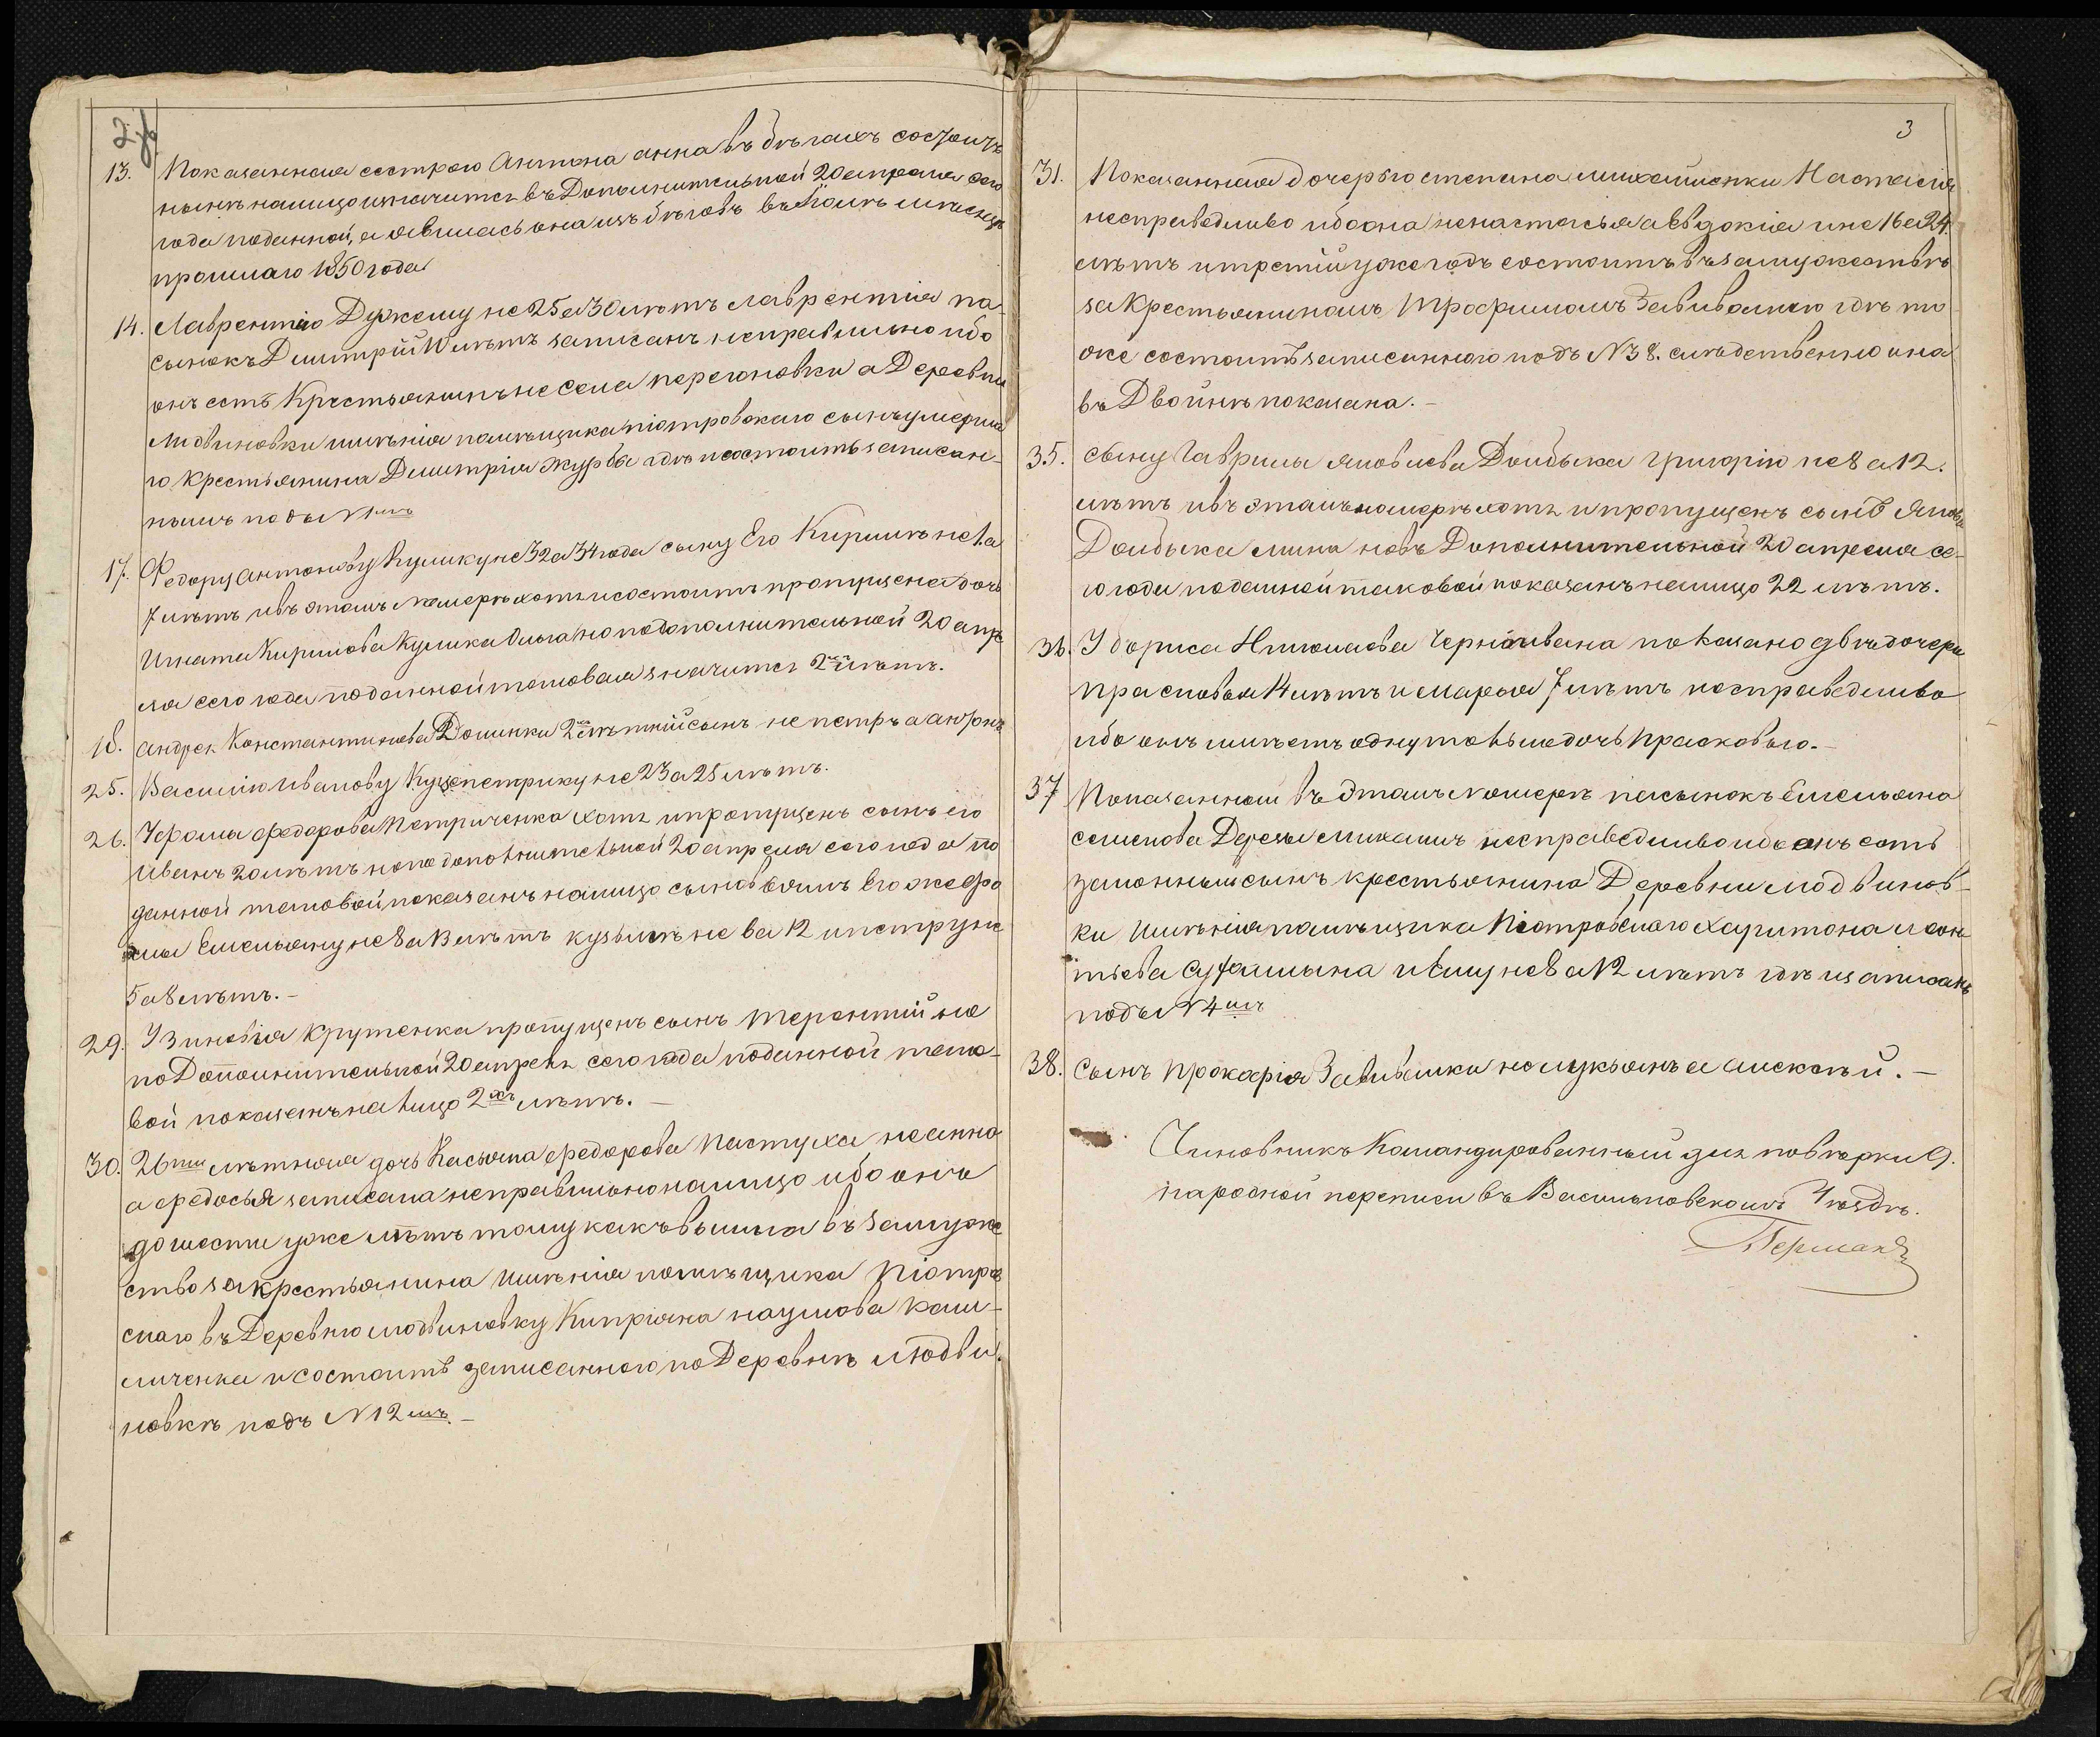 13. Показанная сестрою Антона анна въ бѣгахъ состоитъ
нынѣ налицо и значится въ Дополнительной 20 апреля сего
года поданной, а явилась она изъ бѣговъ въ Маѣ мѣсяцѣ
прошлаго 1850 года
14. Лаврентію Дужему не 25 а 30 лѣтъ Лаврентія па-
сынокъ Дмитрій 10 лѣтъ записанъ неправильно ибо
онъ есть Крестьянинъ не села перегоновки а Деревни
Людвиновки имѣнія помѣщика піотровскаго сынъ умерша
го крестьянина Дмитрія журба гдѣ и состоитъ записан-
нымъ подъ N 1мъ
17. Федору антонову Кулику не 32 а 34 года сыну Его Кирилѣ не 1 а
7 лѣтъ и въ этомъ номерѣ хотя и состоитъ пропущена дочь
Игната Кирилова Кулика Ольга но по дополнительной 20 апре
ля сего года поданной таковая значится 2хъ лѣтъ.
18. андрея Константинова Доминки 2хъ лѣтній сынъ не петръ а
25. Василію Иванову Куцепетрику не 23 а 28 лѣтъ.
26. У Фомы федорова Петриченка хотя и пропущенъ сынъ его
Иванъ 20 лѣтъ но по дополнительной 20 апреля сего года по
данной таковой показанъ налицо сыновьямъ Его же Фо
мы Емельяну не 8 а 13 лѣтъ кузьмѣ не 6 а 12 и петру не
5 а 8 лѣтъ.-
29. У Зиновія Крутенка пропущенъ сынъ терентій но
по Дополнительной 20 апреля сего года поданной тако-
вой показанъ на лицо 2хъ лѣтъ. -
30. 26ти лѣтняя дочь Касьяна федорова Пастуха не анна
а федосья записана неправильно налицо ибо она
до шести уже лѣтъ тому какъ вышла въ замуже
ство за крестьянина имѣнія помѣщика Піотров
скаго въ Деревню людвиновку Кипріяна наумова
и состоитъ записанною по Деревнѣ людви-
новкѣ подъ N 12мъ. -
3
31. Показанная дочерью степана михайленки Настасія
несправедливо ибо она не настасья а Евдокія и не 16 а 24
лѣтъ и третій уже годъ состоитъ въ замужествѣ
за Крестьяниномъ Трофимомъ Завивалкою гдѣ то
же состоитъ записанною подъ N 38. слѣдственно она
въ Двойнѣ показана. -
35. сыну Гаврила яковлева Долбыка григорію не 8 а 12.
лѣтъ и въ этомъ номерѣ хотя и пропущенъ сынъ Якова
Долбыка мина но въ Дополнительной 20 апреля се-
го года поданной таковой показанъ налицо 22 лѣтъ.
36. У бориса Николаева Черноивана показано двѣ дочери
прасковья 14 лѣтъ и марья 7 лѣтъ несправедливо
ибо онъ имѣетъ одну только дочь Прасковью. -
37 Показанной въ этомъ номерѣ пасынокъ Емельяна
семенова Дерезы несправедливо ибо онъ есть
законный сынъ крестьянина Деревни Людвинов-
ки имѣнія помѣщика Піотровскаго Харитона Леон
тьева и ему не 8 а 12 лѣтъ гдѣ и записанъ
подъ N 4мъ
38. Сынъ Прокофія Завивалки не лукьянъ а алексѣй. -
Чиновникъ Командированный для повѣрки 9.
народной переписи въ Васильковскомъ Уѣздѣ.
Германъ